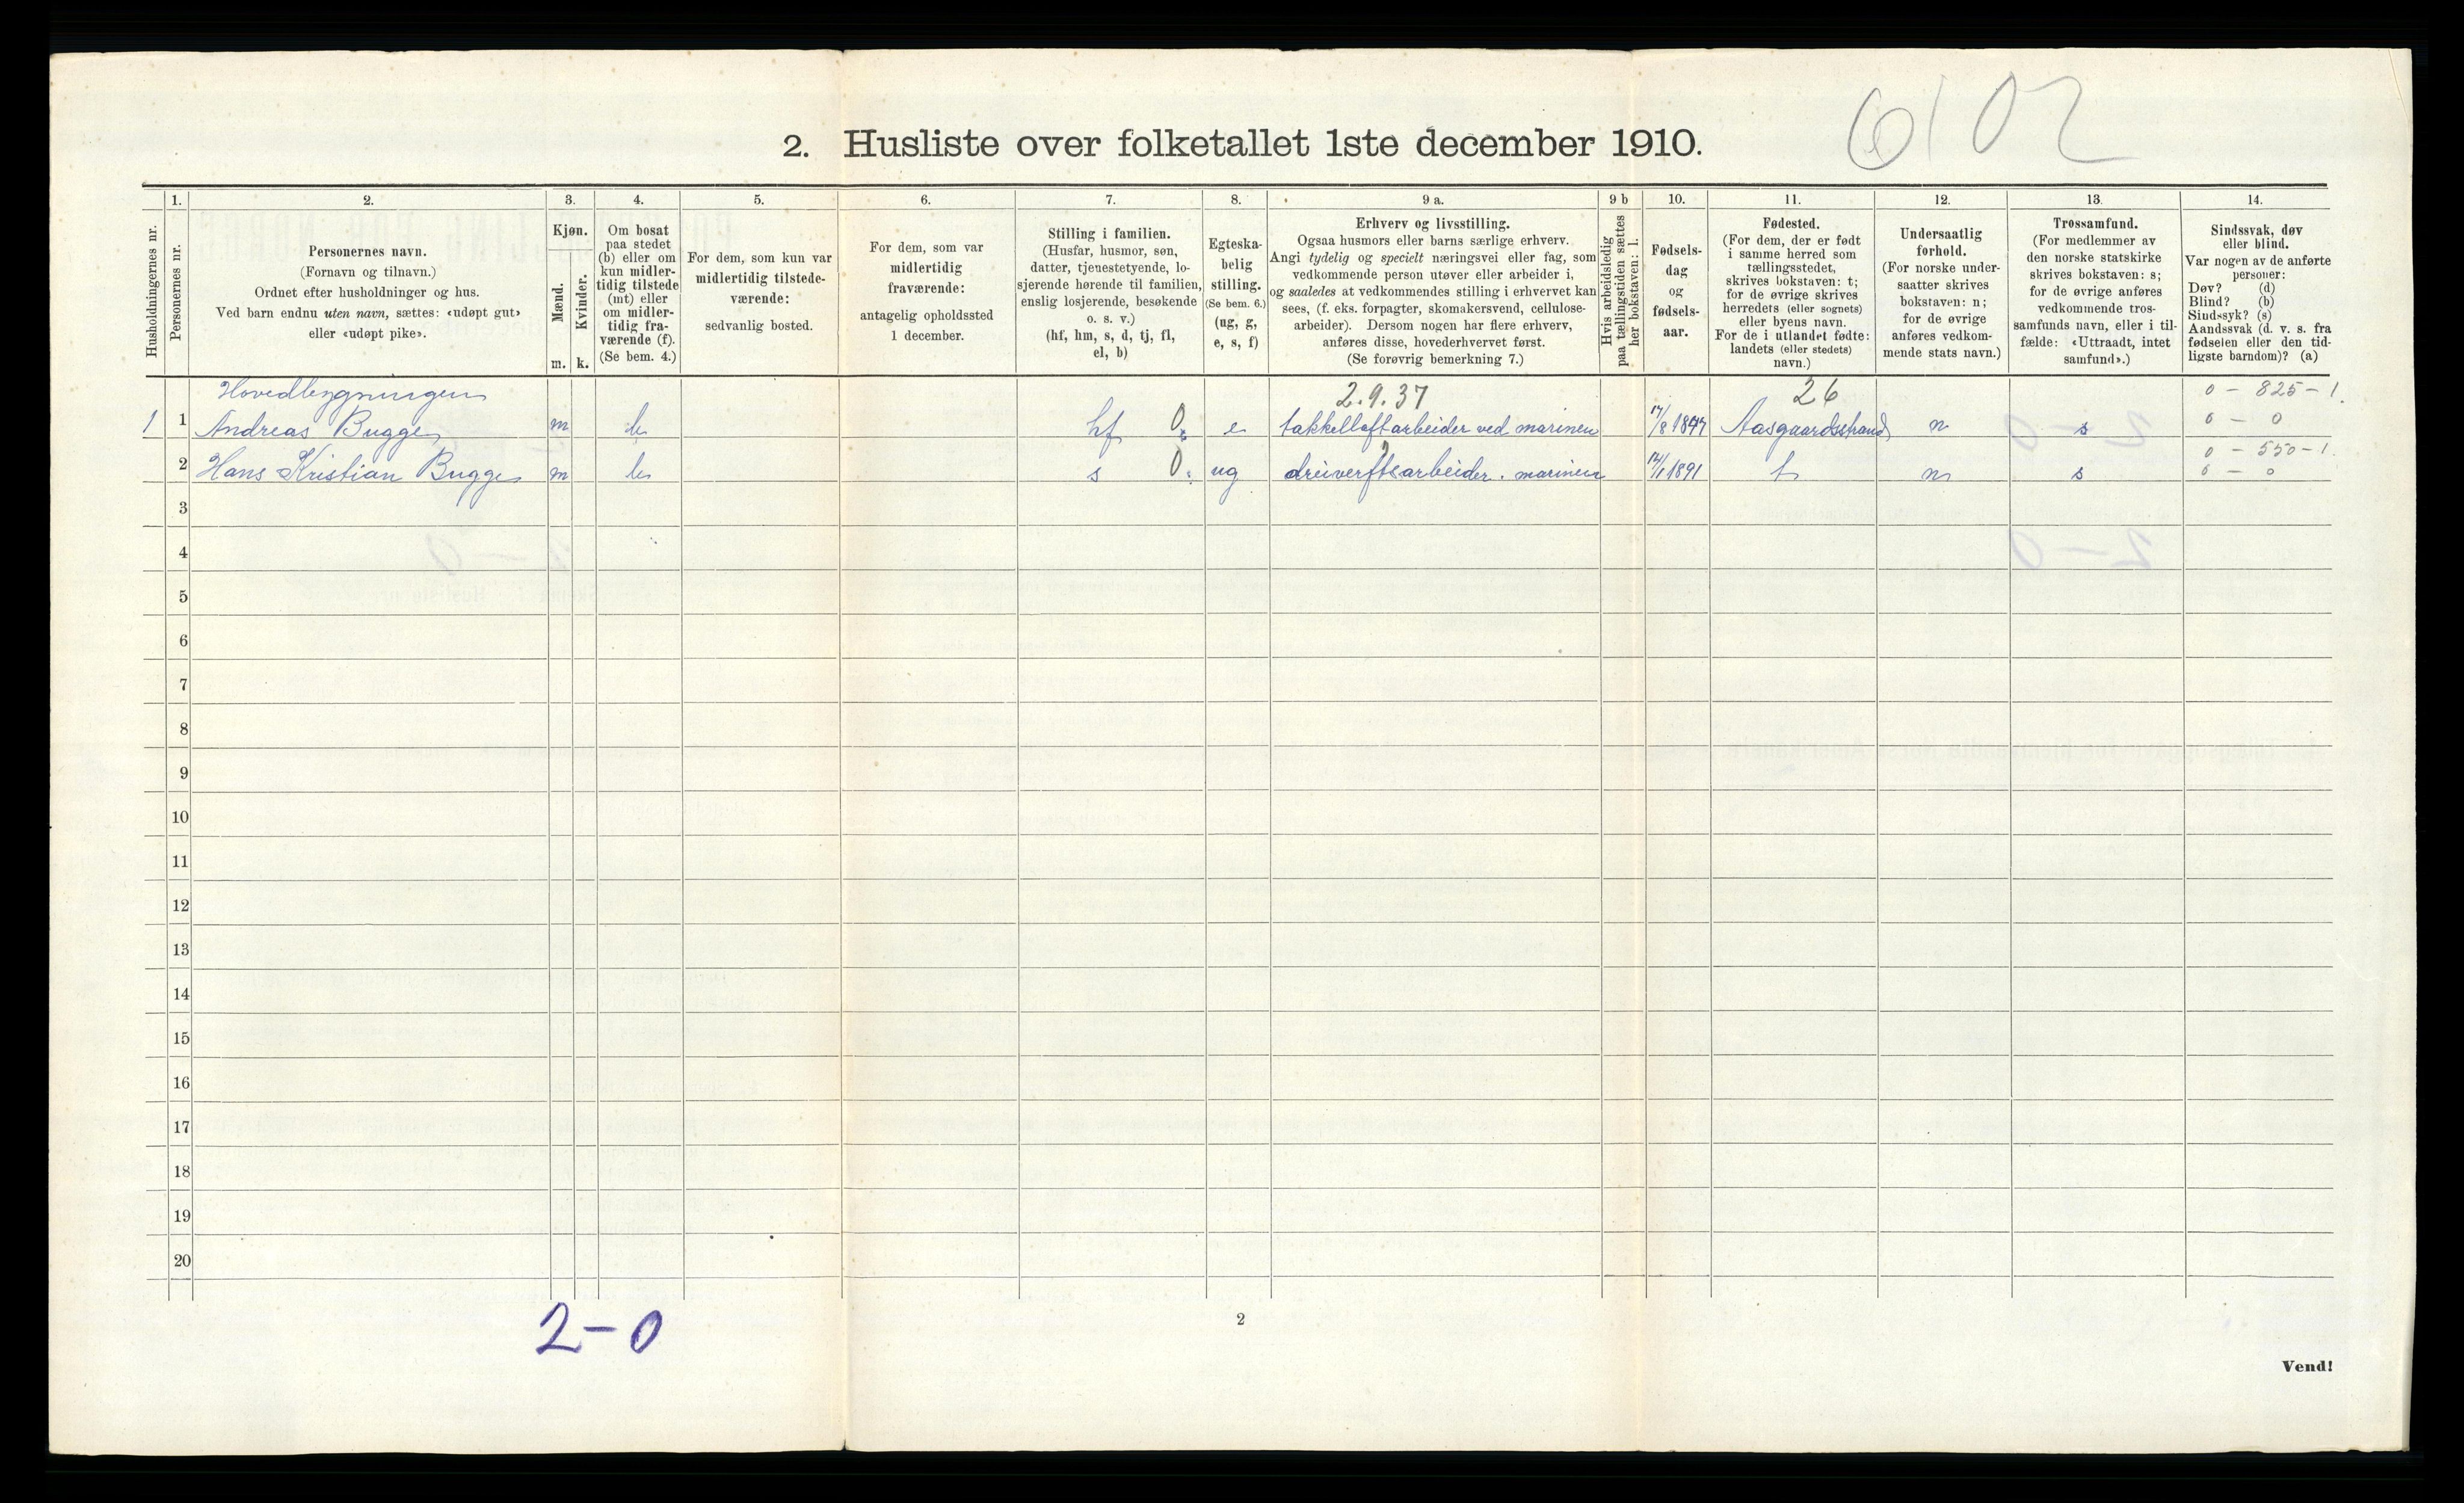 6102
2. Husliste over folketallet 1ste december 1910.
Husholdningernes nr.
1.
Personernes nr.
2.
Personernes navn.
(Fornavn og tilnavn.)
Ordnet efter husholdninger og hus.
Ved barn endnu uten navn, sættes: «udøpt gut»
eller «udøpt pike».
3.
Kjøn.
Mænd.
m.
Kvinder.
k.
4.
Om bosat
paa stedet
(b) eller om
kun midler-
tidig tilstede
(mt) eller
om midler-
tidig fra-
værende (f).
(Se bem. 4.)
5.
For dem, som kun var
midlertidig tilstede-
værende:
sedvanlig bosted.
6.
For dem, som var
midlertidig
fraværende:
antagelig opholdssted
1 december.
7.
Stilling i familien.
(Husfar, husmor, søn,
datter, tjenestetyende, lo-
sjerende hørende til familien,
enslig losjerende, besøkende
o. s. v.)
(hf, hm, s, d, tj, fl,
el, b)
8.
Egteska-
belig
stilling.
(Se bem. 6.)
(ug, g,
e, s, f)
9 a.
Erhverv og livsstilling.
Ogsaa husmors eller barns særlige erhverv.
Angi tydelig og specielt næringsvei eller fag, som
vedkommende person utøver eller arbeider i,
og saaledes at vedkommendes stilling i erhvervet kan
sees, (f. eks. forpagter, skomakersvend, cellulose-
arbeider). Dersom nogen har flere erhverv,
anføres disse, hovederhvervet først.
(Se forøvrig bemerkning 7.)
9 b
Hvis arbeidsledig
paa tællingstiden sættes
her bokstaven: l.
10.
Fødsels-
dag
og
fødsels-
aar.
11.
Fødested.
(For dem, der er født
i samme herred som
tællingsstedet,
skrives bokstaven: t;
for de øvrige skrives
herredets (eller sognets)
eller byens navn.
For de i utlandet fødte:
landets (eller stedets)
navn.)
12.
Undersaatlig
forhold.
(For norske under-
saatter skrives
bokstaven: n;
for de øvrige
anføres vedkom-
mende stats navn.)
13.
Trossamfund.
(For medlemmer av
den norske statskirke
skrives bokstaven: s;
for de øvrige anføres
vedkommende tros-
samfunds navn, eller i til-
fælde: «Uttraadt, intet
samfund».)
14.
Sindssvak, døv
eller blind.
Var nogen av de anførte
personer:
Døv? (d)
Blind? (b)
Sindssyk? (s)
Aandssvak (d. v. s. fra
fødselen eller den tid-
ligste barndom)? (a)
Hovedbygningen 2.9.37 26 0 - 825 - 1.
1 1 Andreas Bugge m b hf 0. e takkelloftarbeider ved marinen 17/8 1847 Aasgaardsstrand n s 0 - 0
0 - 550 - 1.
2 Hans Kristian Bugge m b s 0. ug dreiverftsarbeider. marinen 14/1 1891 t n s 0 - 0
3
4
5
6
7
8
9
10
11
12
13
14
15
16
17
18
19
20
2-0
2
Vend!